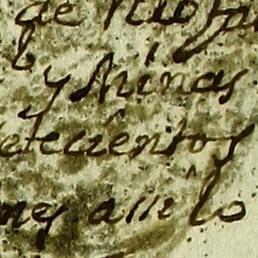 de Rio
y Minas
etecientos
nes assi lo